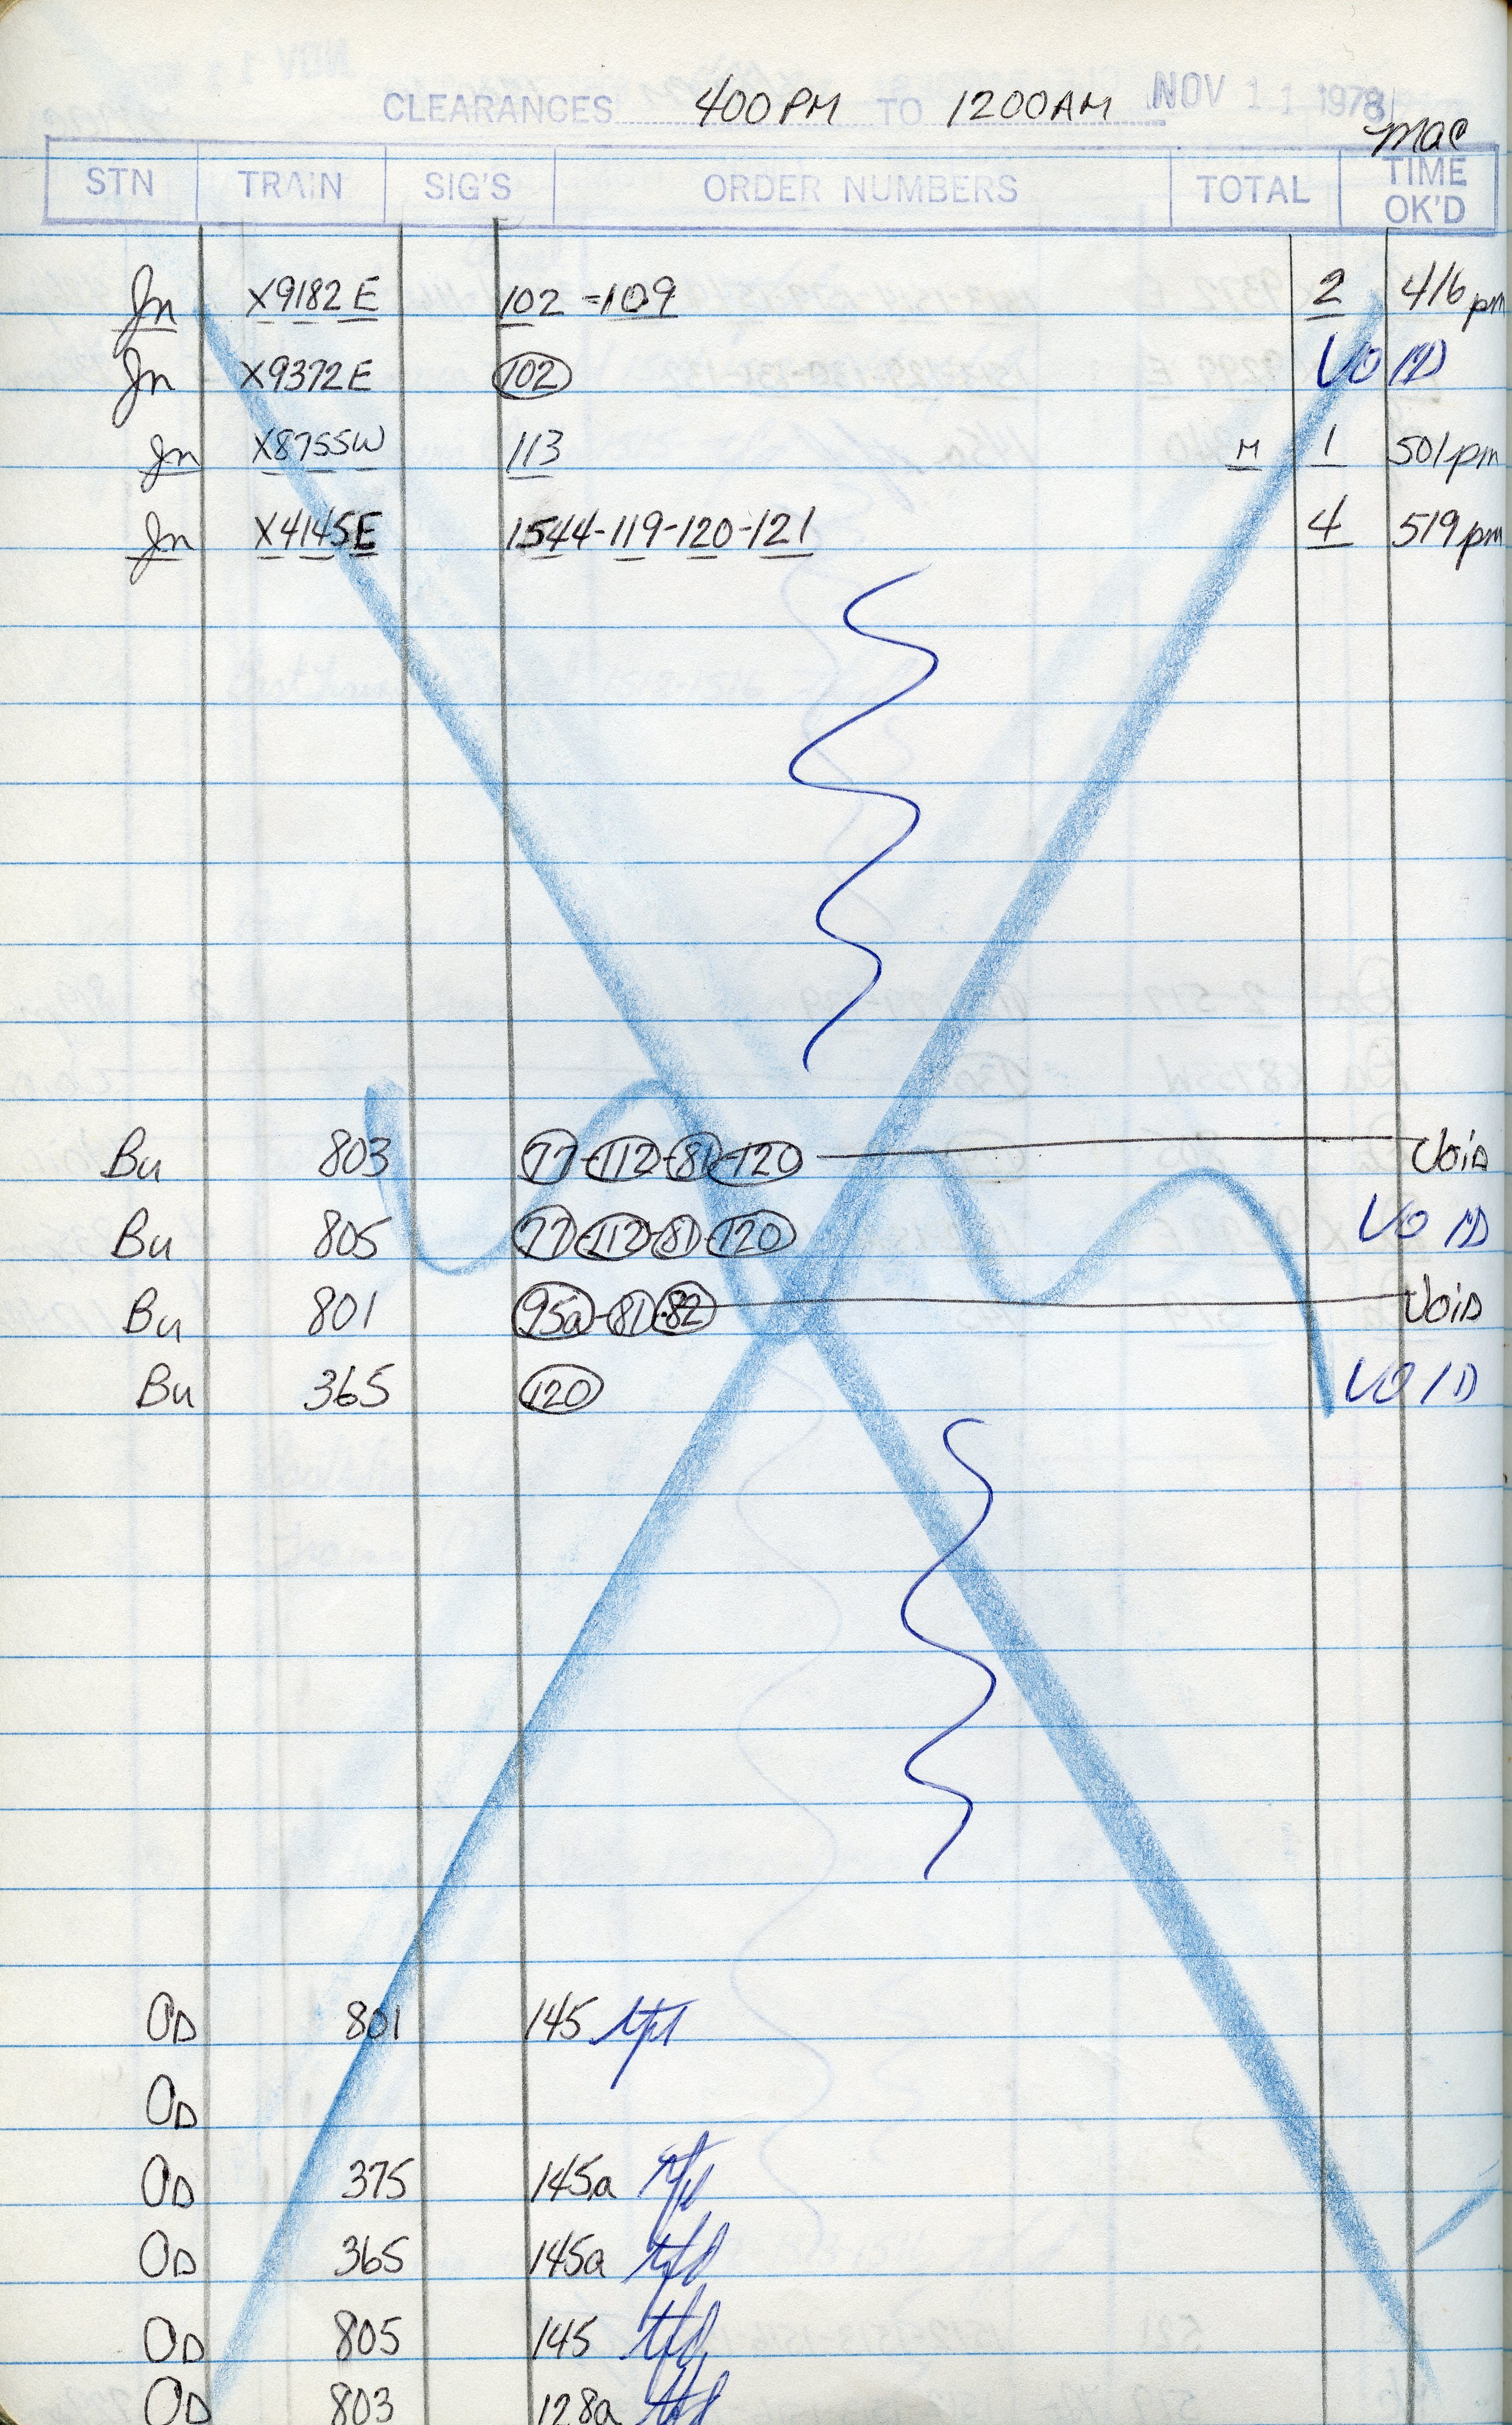 CLEARANCES 400 PM TO 1200 AM NOV 11 1978
mac
STN TRAIN SIG'S ORDER NUMBERS TOTAL TIME OK'D
Jn X9182 E 102-109 2 416 pm
Jn X9372E 102 VOID
Jn X8755W 113 M 1 501 pm
Jn X4145E 1544-119-120-121 4 519 pm
Bu 803 77-112-81-120 Void
Bu 805 77-112-81-120 VOID
Bu 801 95a-81-82 Void
Bu 365 120 VOID
OD 801 145
OD
OD 375 145a
OD 365 145a
OD 805 145
OD 803 128a